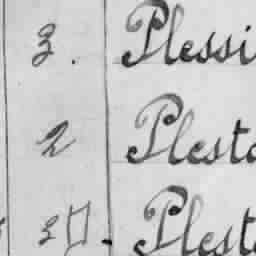 3. Plessi
2 Plesta
3 Plest